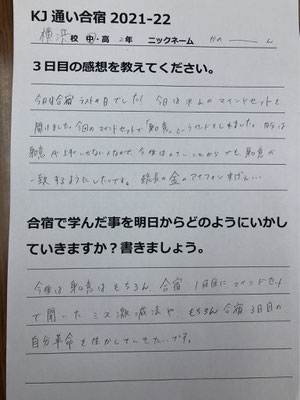 KJ通い合宿 2021-22
横浜 校 中・高 2年 ニックネーム ん
3日目の感想を教えてください。
今日は合宿ラストの日でした! 今日は のマインドセットを
聞けました。今回のマインドセットで「知と意」というワード しました。自分は
知と意が上手くいかない なので、今後は ことから でも知と意が
一致するようにしたいです。 長の金のアイフォンすげぇ...
合宿で学んだ事を明日からどのようにいかし
ていきますか?書きましょう。
今後は知と意はもちろん 合宿 1日目にマインドセット
で聞いたミス激減法や、もちろん合宿3日目の
自分革命を生かしていきたいです。